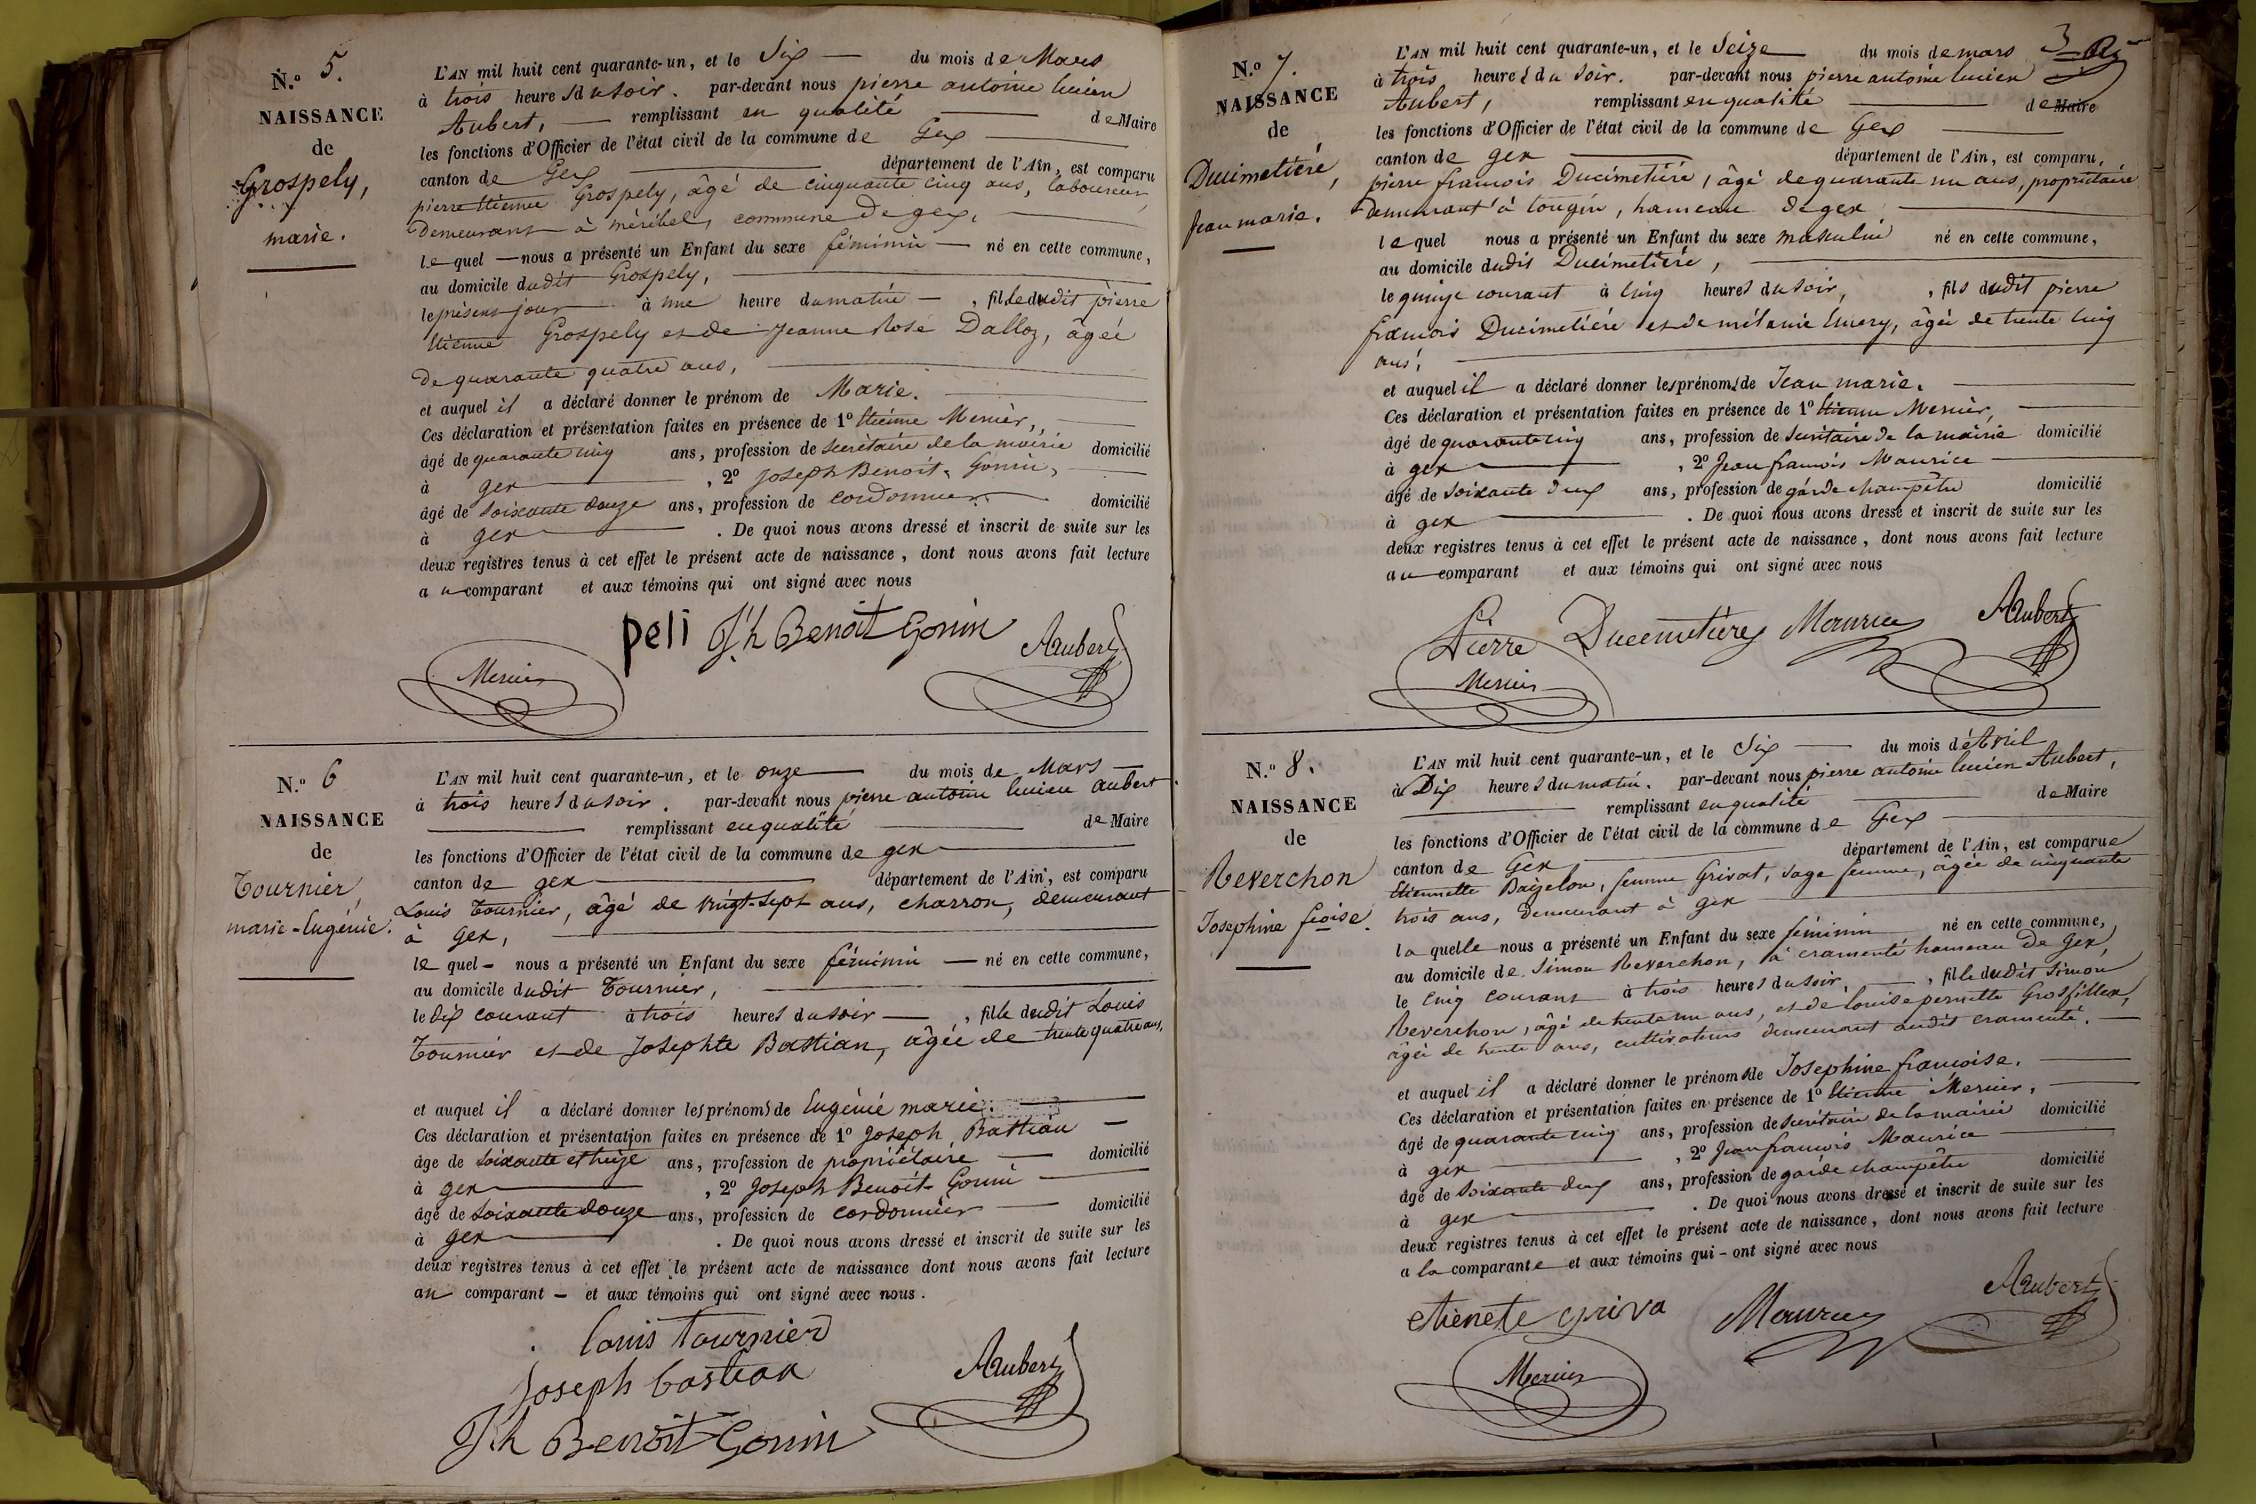 N.º 5.
NAISSANCE
de
Grospely,
marie.
L'AN mil huit cent quarante-un, et le Six du mois de Mars
à trois heures du soir. par-devant nous pierre antoine lucien
Aubert, remplissant en qualité de Maire
les fonctions d'Officier de l'état civil de la commune de Gex
canton de Gex département de l'Ain, est comparu
pierre Etienne Grospely, âgé de cinquante cinq ans, laboureur,
demeurant à méribel, commune de gex,
le quel nous a présenté un Enfant du sexe féminin né en cette commune,
au domicile dudit Grospely,
le présent jour à une heure du matin, fille dudit pierre
Etienne Grospely et de Jeanne Rose Dalloz, âgée
de quarante quatre ans,
et auquel il a déclaré donner le prénom de Marie.
Ces déclaration et présentation faites en présence de 1º Etienne Mercier,
âgé de quarante cinq ans, profession de secrétaire de la mairie domicilié
à gex, 2º Joseph Benoit-Gonin,
âgé de soixante douze ans, profession de cordonnier. domicilié
à gex. De quoi nous avons dressé et inscrit de suite sur les
deux registres tenus à cet effet le présent acte de naissance, dont nous avons fait lecture
au comparant et aux témoins qui ont signé avec nous
peli J.h Benoit Gonin Aubert
Mercier
N.º 6
NAISSANCE
de
Tournier,
marie-Eugénie.
L'AN mil huit cent quarante-un, et le onze du mois de Mars
à trois heures du soir. par-devant nous pierre antoine lucien aubert
remplissant en qualité de Maire
les fonctions d'Officier de l'état civil de la commune de gex
canton de gex département de l'Ain, est comparu
Louis Tournier, âgé de vingt-sept ans, charron, demeurant
à Gex,
le quel nous a présenté un Enfant du sexe féminin né en cette commune,
au domicile dudit Tournier,
le dix courant à trois heures du soir, fille dudit Louis
Tournier et de Josephte Bastian, âgée de trente quatre ans,
et auquel il a déclaré donner les prénoms de Eugénie marie.
Ces déclaration et présentation faites en présence de 1º Joseph Bastian
âge de soixante et treize ans, profession de propriétaire domicilié
à gex, 2º Joseph Benoit-Gonin
âgé de soixante douze ans, profession de cordonnier domicilié
à gex. De quoi nous avons dressé et inscrit de suite sur les
deux registres tenus à cet effet le présent acte de naissance dont nous avons fait lecture
au comparant et aux témoins qui ont signé avec nous.
louis tournier
joseph bastian Aubert
J.h Benoit Gonin
3
N.º 7.
NAISSANCE
de
Ducimetière,
Jean marie.
L'AN mil huit cent quarante-un, et le Seize du mois de mars
à trois heures du soir. par-devant nous pierre antoine lucien
Aubert, remplissant en qualité de Maire
les fonctions d'Officier de l'état civil de la commune de Gex
canton de gex département de l'Ain, est comparu,
pierre françois Ducimetière, âgé de quarante un ans, propriétaire
demeurant à tougin, hameau de gex
le quel nous a présenté un Enfant du sexe masculin né en cette commune,
au domicile dudit Ducimetière,
le quinze courant à cinq heures du soir, fils dudit pierre
françois Ducimetière et de mélanie Emery, âgée de trente cinq
ans,
et auquel il a déclaré donner les prénoms de Jean marie.
Ces déclaration et présentation faites en présence de 1º Etienne Mercier,
âgé de quarante cinq ans, profession de secrétaire de la mairie domicilié
à gex, 2º Jean françois Maurice
âgé de soixante deux ans, profession de garde champêtre domicilié
à gex. De quoi nous avons dressé et inscrit de suite sur les
deux registres tenus à cet effet le présent acte de naissance, dont nous avons fait lecture
au comparant et aux témoins qui ont signé avec nous
Pierre Ducimetière Maurice Aubert
Mercier
N.º 8.
NAISSANCE
de
Reverchon
Josephine fçoise.
L'AN mil huit cent quarante-un, et le Six du mois d'Avril
à Dix heures du matin. par-devant nous pierre antoine lucien Aubert,
remplissant en qualité de Maire
les fonctions d'Officier de l'état civil de la commune de Gex
canton de Gex département de l'Ain, est comparue
Etiennette Baizelon, femme Grivat, sage femme, âgée de cinquante
trois ans, demeurant à gex
la quelle nous a présenté un Enfant du sexe féminin né en cette commune,
au domicile de Simon Reverchon, à cramenté hameau de Gex,
le cinq courant à trois heures du soir, fille dudit Simon
Reverchon, âgé de trente un ans, et de louise pernette Grosfillex,
âgée de trente ans, cultivateurs demeurant audit cramenté.
et auquel il a déclaré donner le prénoms de Josephine françoise.
Ces déclaration et présentation faites en présence de 1º Etienne Mercier,
âgé de quarante cinq ans, profession de secrétaire de la mairie domicilié
à gex, 2º Jean françois Maurice
âgé de soixante deux ans, profession de garde champêtre domicilié
à gex. De quoi nous avons dressé et inscrit de suite sur les
deux registres tenus à cet effet le présent acte de naissance, dont nous avons fait lecture
a la comparante et aux témoins qui ont signé avec nous
etienete griva Maurice Aubert
Mercier